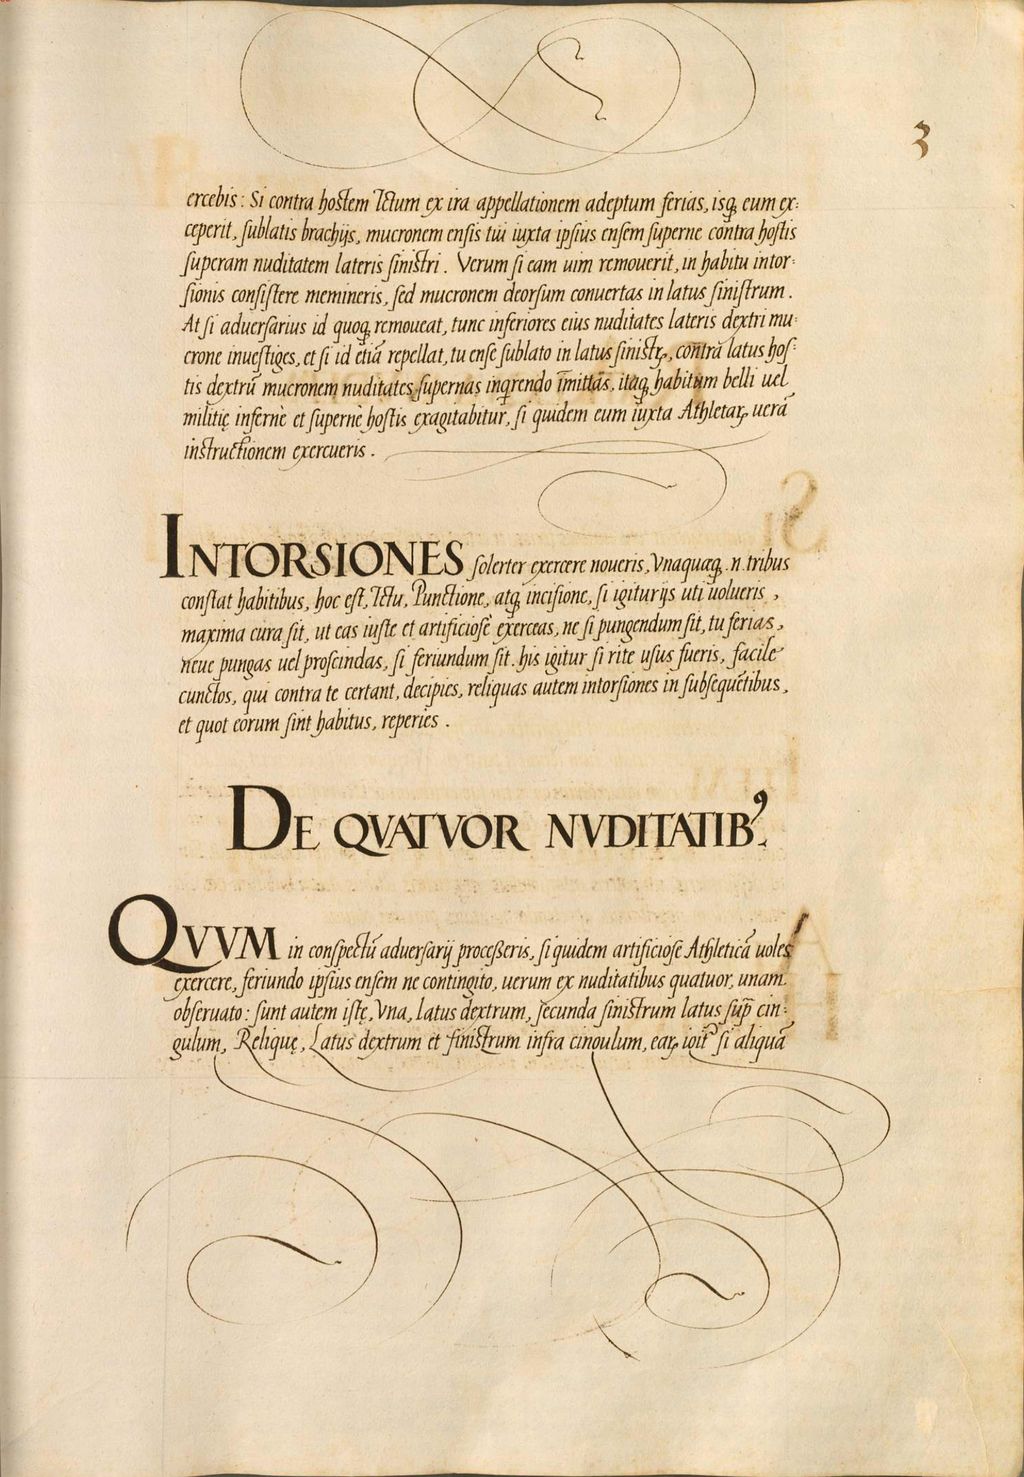 3
ercebis: Si contra hostem Ictum ex ira appellationem adeptum ferias, isq₃ eum ex:
ceperit, sublatis brachijs, mucronem ensis tui iuxta ipsius ensem superne contra hostis
superam nuditatem lateris sinistri. Verum si eam uim remouerit, in habitu intor:
sionis consistere memineris, sed mucronem deorsum conuertas in latus sinistrum.
At si aduersarius id quoq₃ remoueat, tunc inferiores eius nuditates lateris dextri mu:
crone inuestiges, et si id etiā repellat, tu ense sublato in latus sinistrꝫ, contra latus hos:
tis dextrū mucronem nuditates supernas inqrendo īmittas, itaq₃ habitum belli uel
militię infernè et supernè hostis exagitabitur, si quidem eum iuxta Athletaꝝ uerā
instructionem exercueris.
INTORSIONES solerter exercere noueris, Vnaquęq₃ .n. tribus
constat habitibus, hoc est, Ictu, Punctione, atq₃ incisione, si igitur ijs uti uolueris,
maxima cura sit, ut eas iuste et artificiosè exerceas, ne si pungendum sit, tu ferias,
neue pungas uel proscindas, si feriundum sit. his igitur si rite usus fueris, facile
cunctos, qui contra te certant, decipies, reliquas autem intorsiones in subsequētibus,
et quot eorum sint habitus, reperies.
DE QVATVOR NVDITATIBꝰ.
QVVM in conspectū aduersarij proceßeris, si quidem artificiosè Athleticā uoles
exercere, feriundo ipsius ensem ne contingito, uerum ex nuditatibus quatuor, unam
obseruato: sunt autem istę, Vna, latus dextrum, secunda sinistrum latus sup̄ cin:
gulum, Reliquę, Latus dextrum et sinistrum infra cingulum, eaꝝ igit᷑ si aliquā